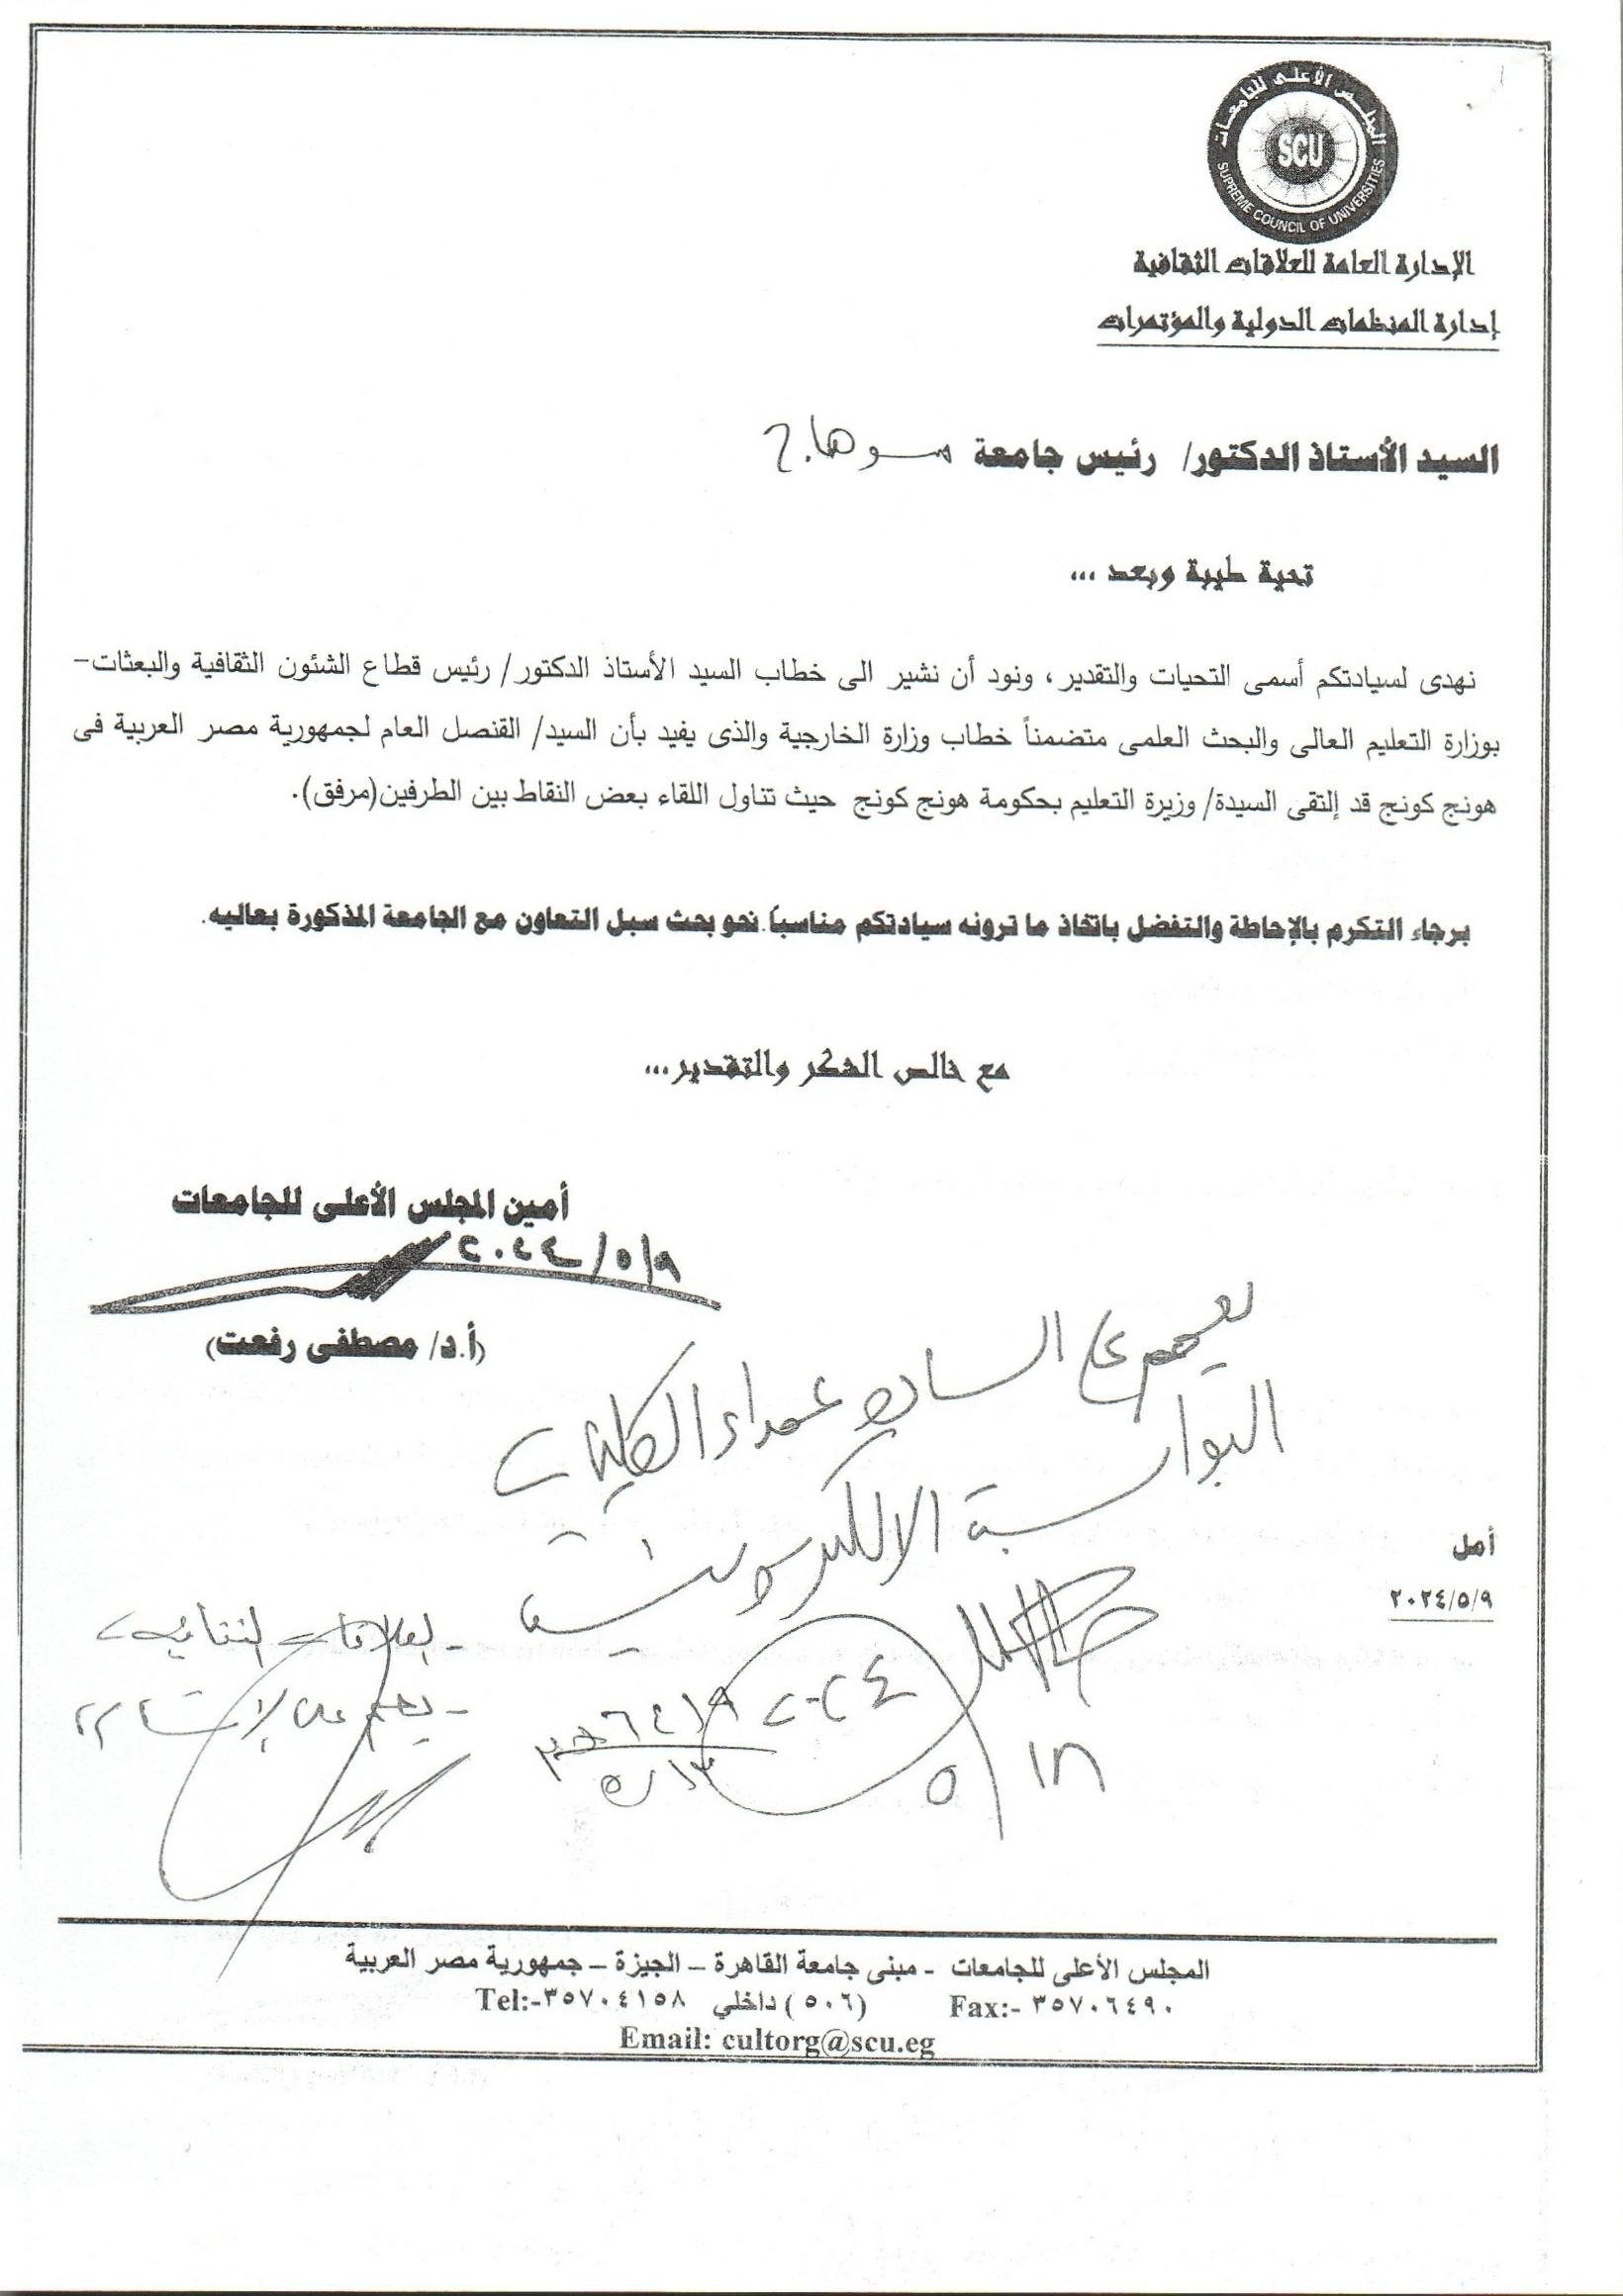 المجلس الأعلى للجامعات
SCU
SUPREME COUNCIL OF UNIVERSITIES
الإدارة العامة للعلاقات الثقافية
إدارة المنظمات الدولية والمؤتمرات
السيد الأستاذ الدكتور/ رئيس جامعة سوهاج
تحية طيبة وبعد ...
نهدى لسيادتكم أسمى التحيات والتقدير، ونود أن نشير الى خطاب السيد الأستاذ الدكتور/ رئيس قطاع الشئون الثقافية والبعثات-
بوزارة التعليم العالى والبحث العلمى متضمناً خطاب وزارة الخارجية والذى يفيد بأن السيد/ القنصل العام لجمهورية مصر العربية فى
هونج كونج قد إلتقى السيدة/ وزيرة التعليم بحكومة هونج كونج حيث تناول اللقاء بعض النقاط بين الطرفين(مرفق).
برجاء التكرم بالإحاطة والتفضل باتخاذ ما ترونه سيادتكم مناسباً نحو بحث سبل التعاون مع الجامعة المذكورة بعاليه.
مع خالص الشكر والتقدير...
أمين المجلس الأعلى للجامعات
٢٠٢٤/٥/٩
(أ.د/ مصطفى رفعت)
السادة عمداء الكليات
البوابة الالكترونية
أمل
٢٠٢٤/٥/٩
- العلاقات الثقافية
٢٠٢٤
٥/١٨
المجلس الأعلى للجامعات - مبنى جامعة القاهرة – الجيزة – جمهورية مصر العربية
Fax:- ٣٥٧٠٦٤٩٠ (٥٠٦) داخلي Tel:-٣٥٧٠٤١٥٨
Email: cultorg@scu.eg